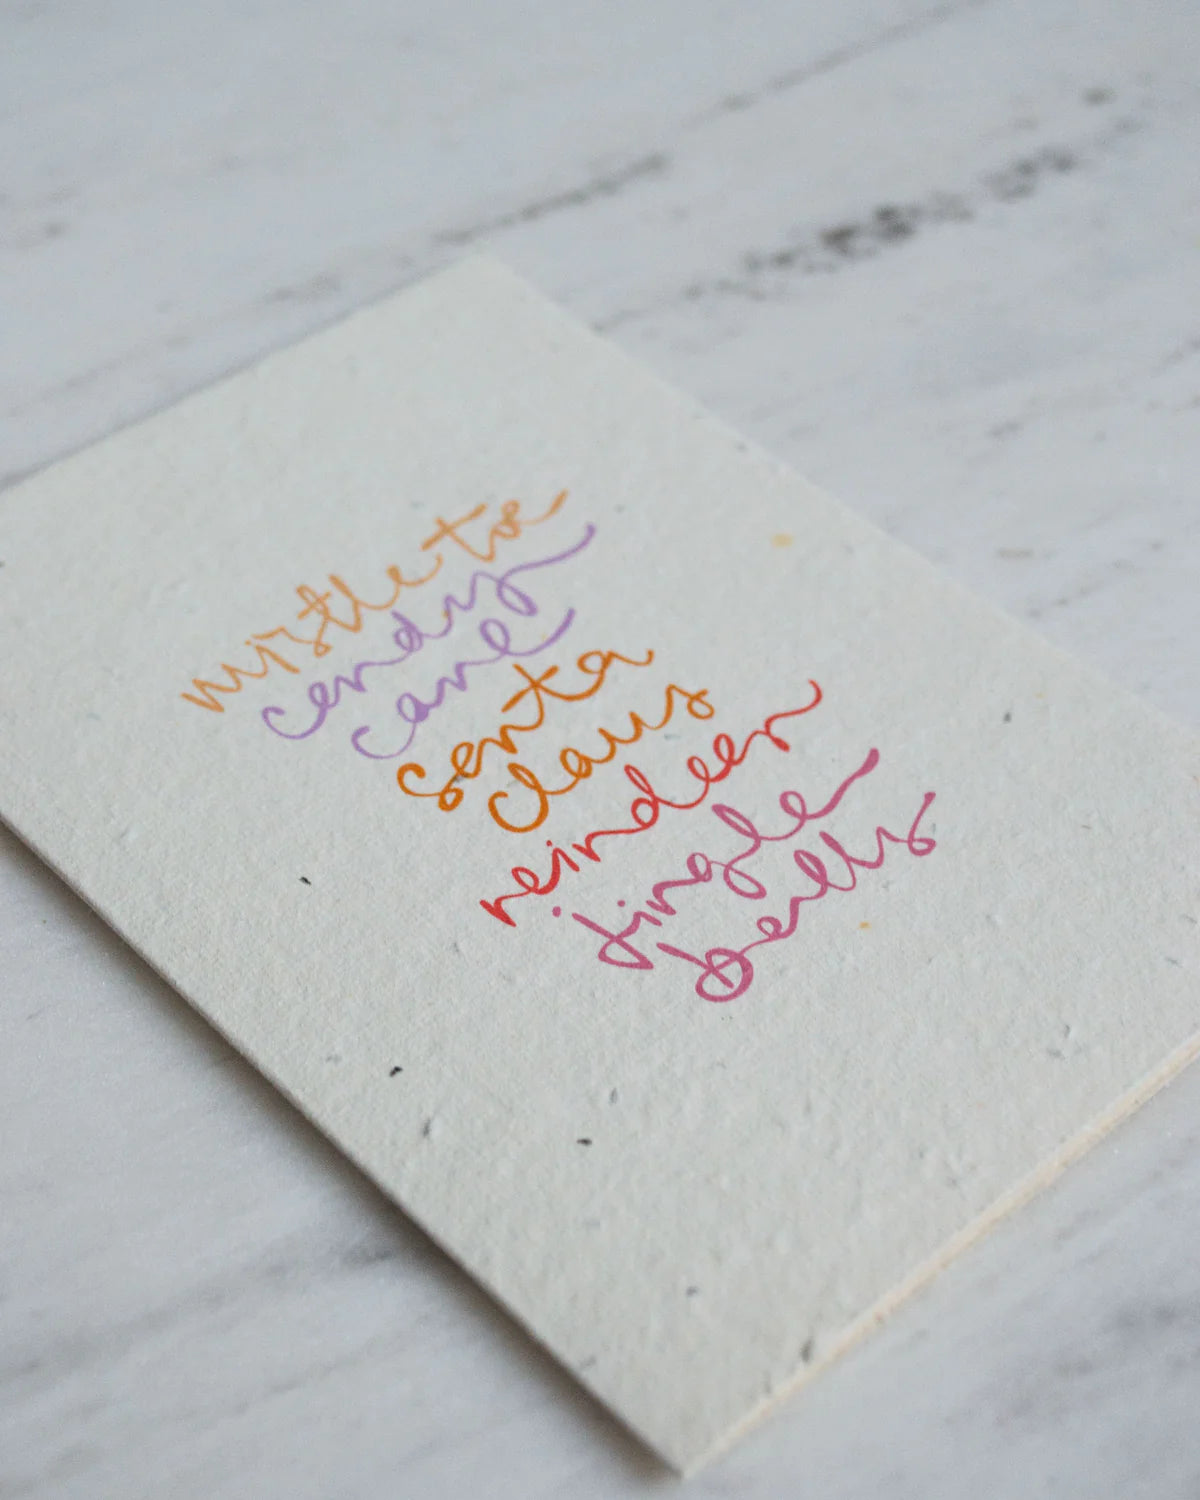 mistletoe
candy
cane
santa
claus
reindeer
jingle
bells